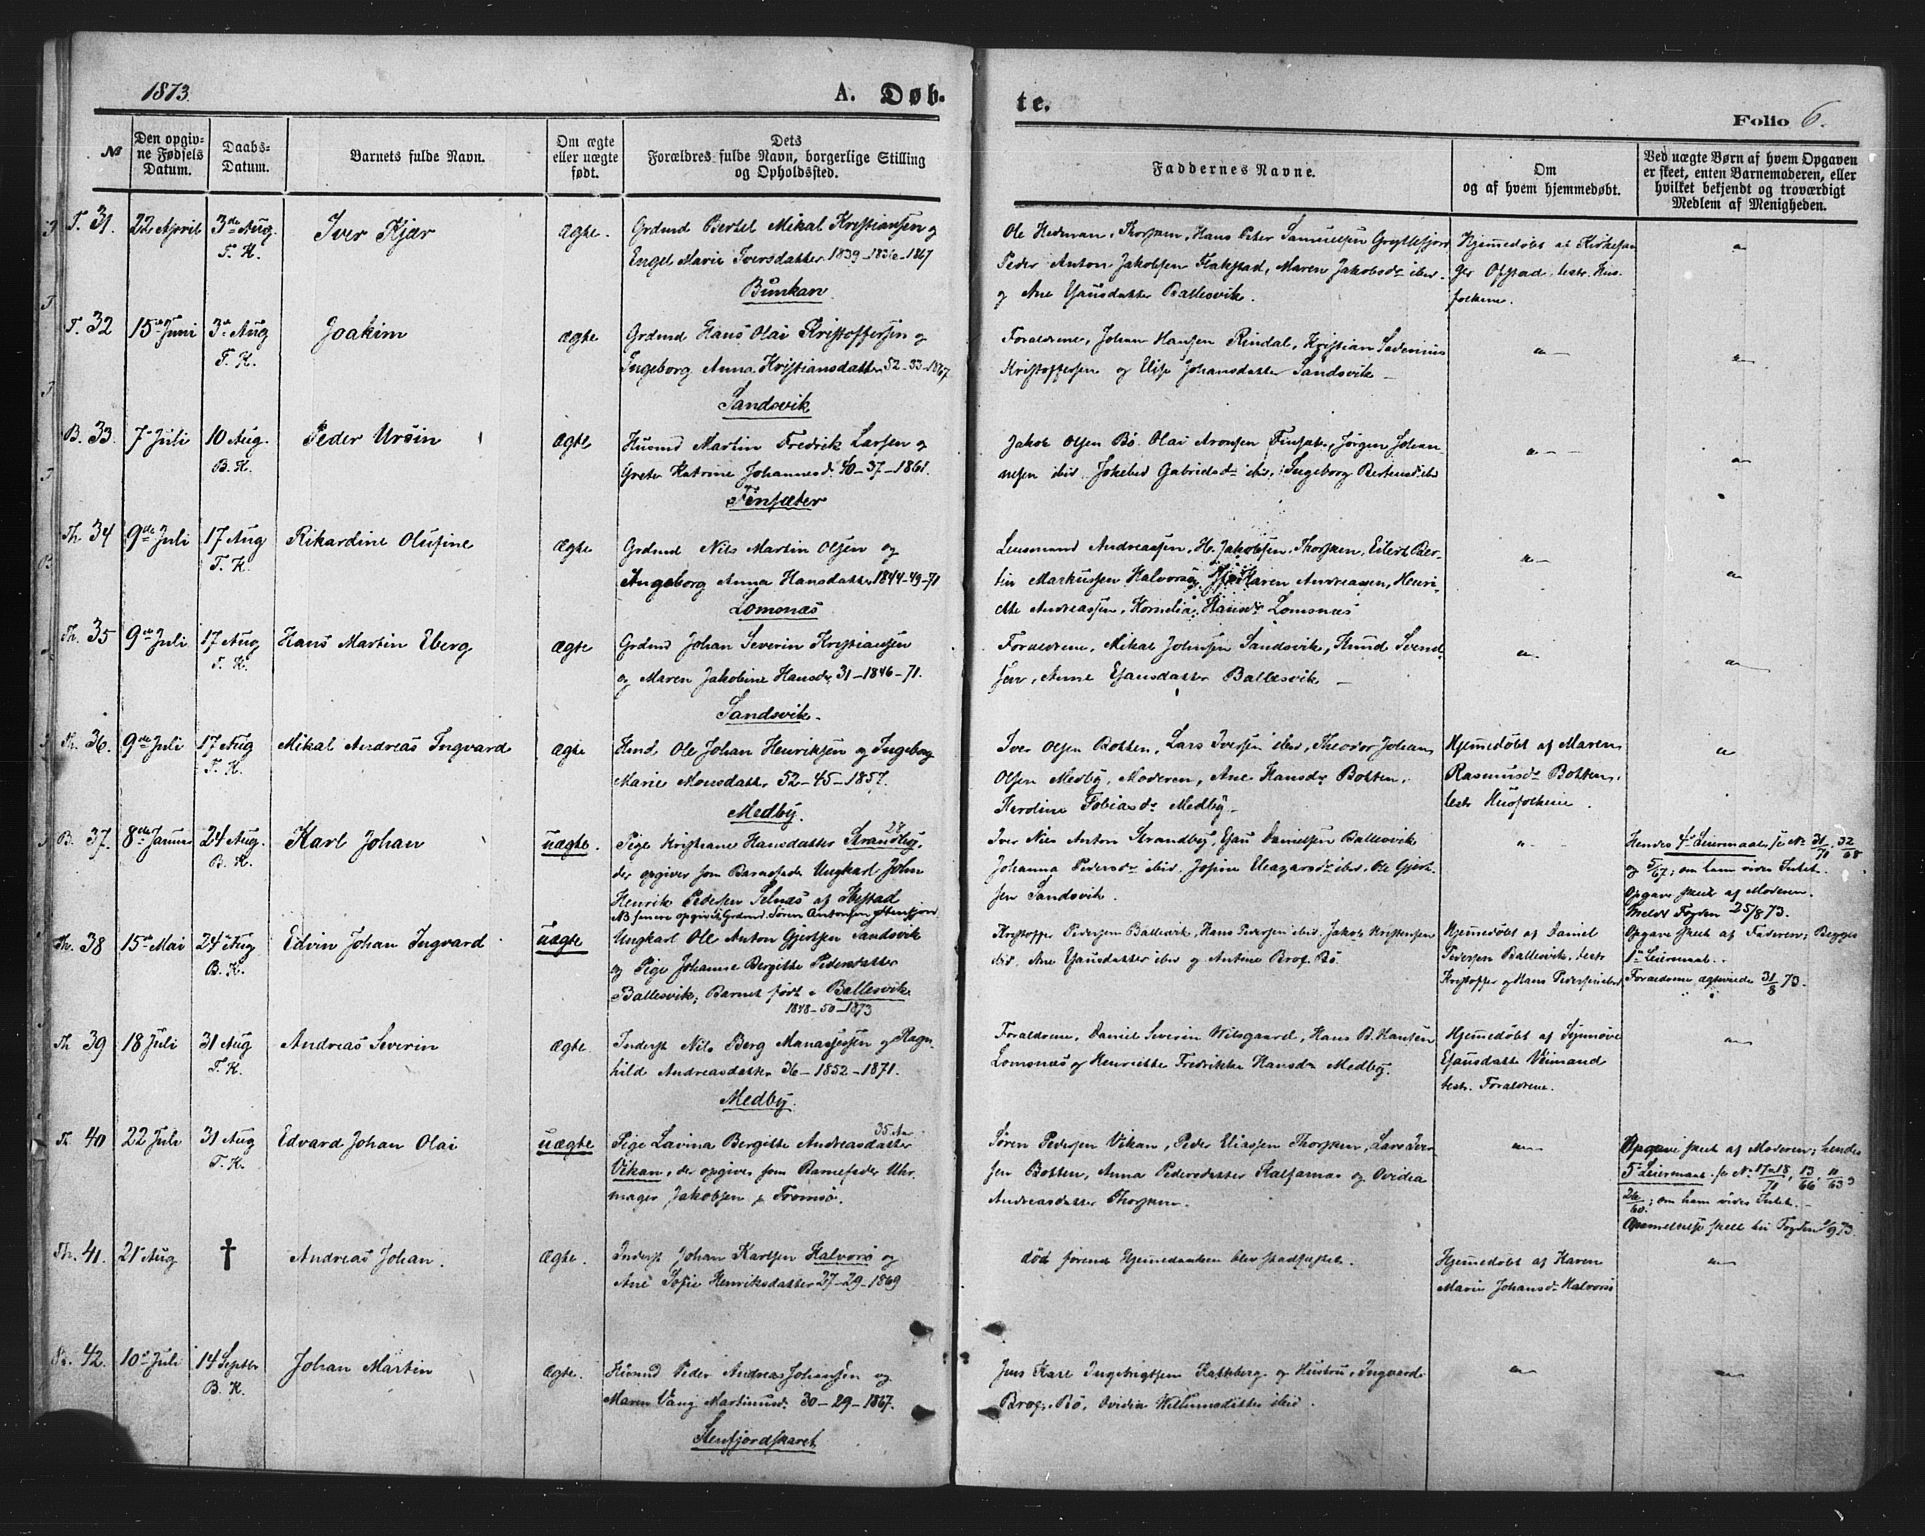 1873.
A. Døb-
te.
Folio 6.
№
Den opgiv-
ne Fødsels
Datum.
Daabs-
Datum.
Barnets fulde Navn.
Om ægte
eller uægte
født.
Dets
Forældres fulde Navn, borgerlige Stilling
og Opholdssted.
Faddernes Navne.
Om
og af hvem hjemmedøbt.
Ved uægte Børn af hvem Opgaven
er skeet, enten Barnemoderen, eller
hvilket bekjendt og troværdigt
Medlem af Menigheden.
T. 31. 22 April 3de Aug. Iver Kjær ægte. Grdmd Bertel Mikal Kristiansen og
T. K. Engel Marie Iversdatter 1839-1836-1867
Bunkan
Ole Hedman, Thorsken, Hans Peter Samuelsen Gryllefjord
Peder Anton Jakobsen Flakstad, Maren Jakobsdr ibid.
og Ane Esausdatter Ballesvik.
Hjemmedøbt af Kirkesan
ger Ofstad, testr. Hus
folkene.
T. 32 15de Juni 3de Aug Joakim ægte Grdmd Hans Olai Kristoffersen og
T. K. Ingeborg Anna Kristiansdatter 52-33-1867
Sandsvik
Forældrene, Johan Hansen Rindal, Kristian Severinus
Kristoffersen og Elise Johansdatter Sandsvik
B. 33. 7de Juli 10 Aug. Peder Ursin ægte Husmd Martin Fredrik Larsen og
B. K. Grete Katrine Johannesd. 40-37-1861.
Finsæter
Jakob Olsen Bø, Olai Aronsen Finsæt., Jørgen Johan
nesen ibid. Jokebed Gabrielsdr ibid., Ingeborg Bertensd ibid
Th. 34 9de Juli 17 Aug Rikardine Olufine ægte Grdmd Nils Martin Olsen og
T. K. Ingeborg Anna Hansdatter 1844-49-71
Lomsnæs
Lensmand Andreassen, H. Jakobsen, Thorsken, Eilert Ber-
tin Markussen Halvorsø, Karen Andreassen, Henri-
ette Andreassen, Kornelia Hansdr Lomsnæs
Th. 35 9de Juli 17 Aug Hans Martin Eberg ægte Grdmd Johan Severin Kristiansen
T. K. og Maren Jakobine Hansdr 31-1846-71.
Sandsvik.
Forældrene, Mikal Johnsen Sandsvik, Knud Svend
sen, Anne Esausdatter Ballesvik
Th. 36. 9de Juli 17 Aug Mikal Andreas Ingvard ægte Ole Johan Henriksen og Ingeborg
T. K. Marie Monsdatter 52-45-1857.
Medby.
Iver Olsen Botten, Lars Iversen ibid, Theodor Johan
Olsen Medby, Moderen, Ane Hansdr Botten,
Karoline Tobiasdr Medby.
Hjemmedøbt af Maren
Rasmusdr Botten,
testr Husfolkene.
B. 37. 8de Januar 24 Aug. Karl Johan uægte. Pige Kristiane Hansdatter Strandby, 28
B. K. der opgiver som Barnefader Ungkarl John
Henrik Pedersen Selnæs af Ibestad
NB senere opgivet Grdmd. Søren Antonsen Stenfjord
Iver Nils Anton Strandby, Esau Danielsen Ballesvik
Johanna Pedersdr ibid, Josine Eleazarsdr ibid, Ole Gjert
sen Sandsvik.
Hendes 4de Leiermaal, se No 31/71. 32/68
og 5/67; om ham vides Intet.
Opgave skeet af Moderen.
Meldt Fogden 25/8 73.
Th. 38 15de Mai 24 Aug. Edvin Johan Ingvard uægte Ungkarl Ole Anton Gjertsen Sandsvik
B. K. og Pige Johanne Bergitte Pedersdatter
Ballesvik; Barnet født i Ballesvik
1848-50-1873
Kristoffer Pedersen Ballesvik, Hans Pedersen ibid, Jakob Kristensen
ibid. Ane Esausdatter ibid og Antine Brox Bø.
Hjemmedøbt af Daniel
Pedersen Ballesvik, testr
Kristoffer og Hans Pedersen ibid
Opgave skeet af Faderen; Begges
1ste Leiermaal.
Forældrene ægteviede 31/8 73.
Th. 39 18 Juli 31 Aug Andreas Severin ægte. Inderst Nils Berg Manassesen og Ragn-
T. K. hild Andreasdatter 36-1852-1871.
Medby.
Forældrene, Daniel Severin Wilsgaard, Hans B. Hansen
Lomsnæs og Henriette Fredrikke Hansdr Medby.
Hjemmedøbt af Synnøve
Esausdatter Veimand
testr. Forældrene.
T. 40 22 Juli 31 Aug Edvard Johan Olai uægte Pige Lavina Bergitte Andreasdatter 35 Aar
T. K. Vikan, der opgiver som Barnefader Uhr
mager Jakobsen fra Tromsø.
Søren Pedersen Vikan, Peder Eliassen Thorsken, Lars Iver
sen Botten, Anna Pedersdatter Kalfarnæs og Ovidia
Andreasdatter Thorsken.
Opgave skeet af Moderen; hendes
5te Leiermaal. se No 17 og 18/71, 13/66, 11/63,
26/60; om ham vides Intet.
Anmeldelse skeet til Fogden 2/9 73.
Th. 41. 21de Aug † Andreas Johan. ægte. Inderst Johan Karlsen Halvorsø og
Ane Sofie Henriksdatter 27-29-1869
død førend Hjemmedaaben blev stadfæstet.
Hjemmedøbt af Karen
Marie Johansdr Halvorsø
B. 42. 10de Juli 14 Septbr Johan Martin ægte. Husmd Peder Andreas Johansen og
B. K. Maren Vang Martinusd. 30-29-1867.
Stenfjordskaret
Jens Karl Ingebrigtsen Kaldberg og Hustru, Ingvard
Brox, Bø, Ovidia Wilhumsdatter ibid.